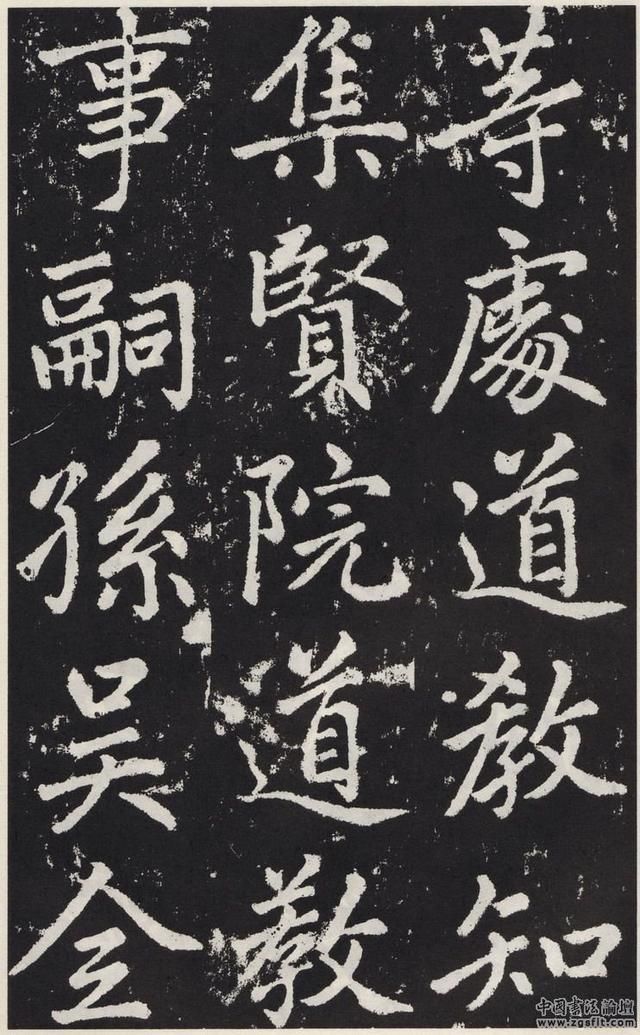 等處道教知
集賢院道教
事嗣孫吳全
中国书法論壇
www.zgsflt.com